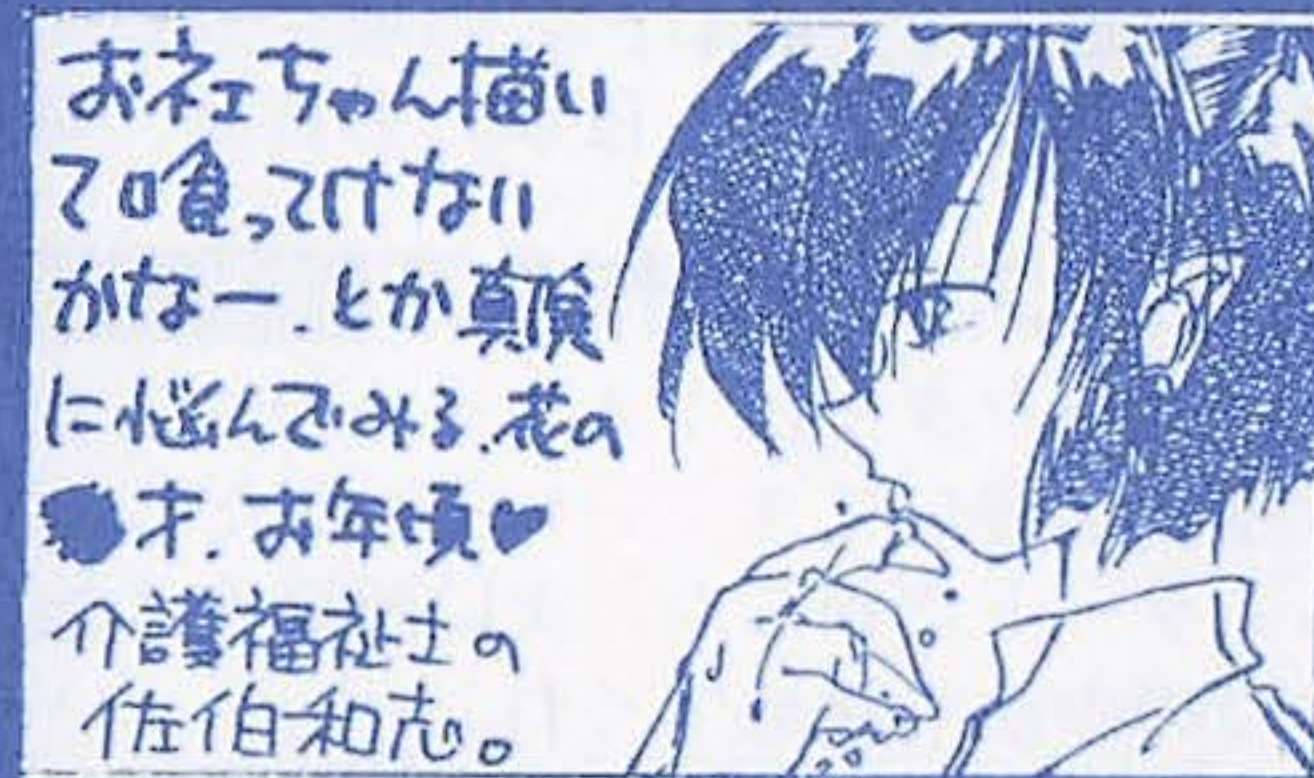 おネェちゃん描い
て喰ってけない
かなー.とか真険
に悩んでみる.花の
●才.お年頃♥
介護福祉士の
佐伯和志。